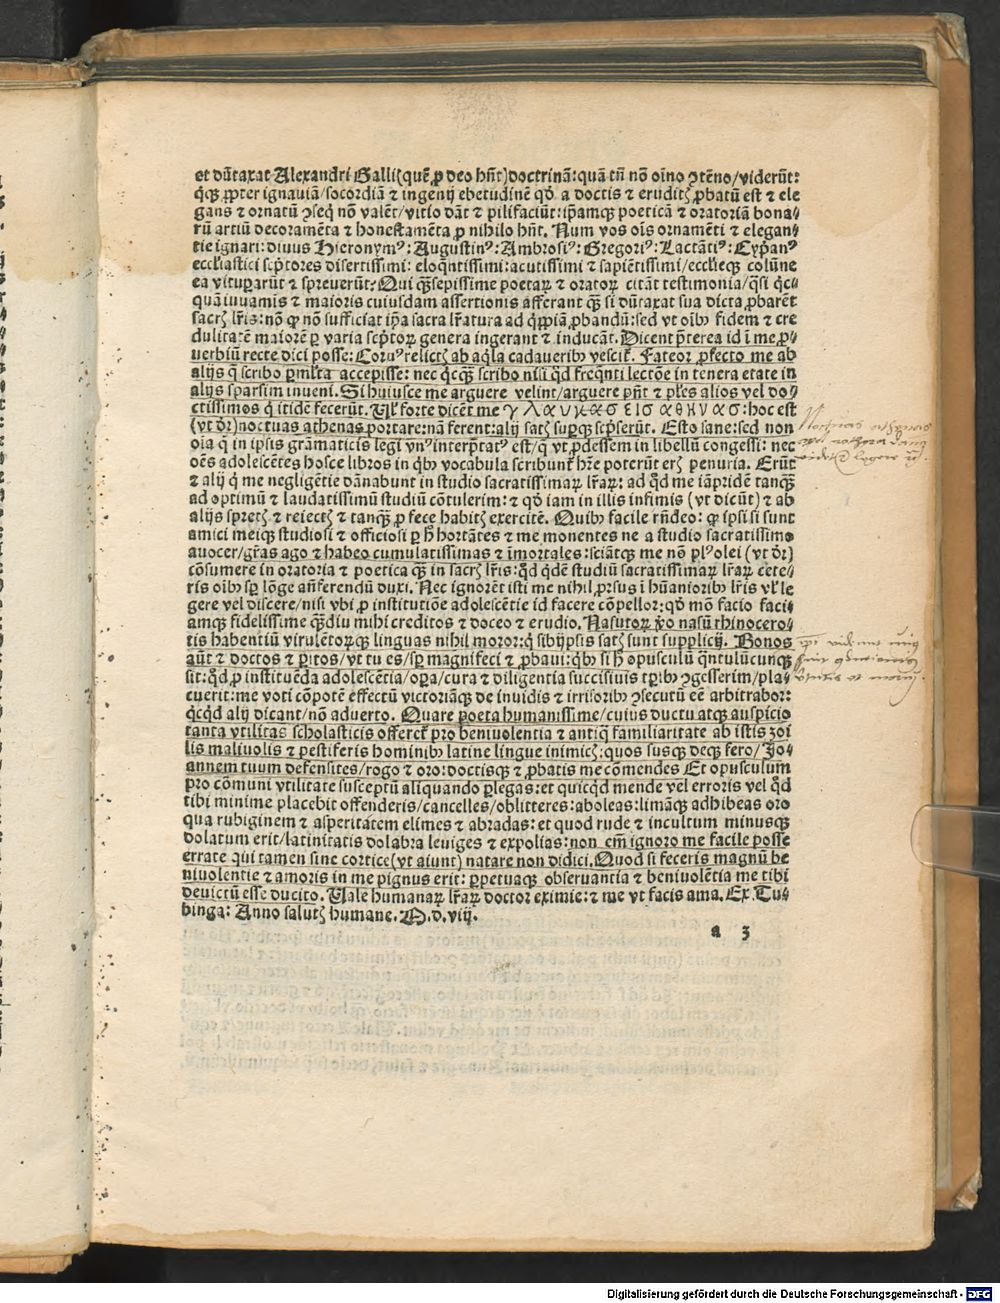 et dūtaxat Alexandri Galli(quē ꝓ deo hn̄t)doctrinā:quā tn̄ nō oīno ꝯtēno/viderūt:
q̄cꝗ ꝓpter ignauiā/socordiā ⁊ ingenij ebetudinē qd̄ a doctis ⁊ eruditꝭ ꝓbatū est ⁊ ele
gans ⁊ ornatū ꝯseq̄ nō valēt/vitio dāt ⁊ pilifaciūt:ip̄amqꝫ poeticā ⁊ oratoriā bona⸗
rū artiū decoramēta ⁊ honestamēta ꝓ nihilo hn̄t. Num vos oīs ornamēti ⁊ elegan⸗
tie ignari:diuus Hieronymꝰ:Augustinꝰ:Ambrosiꝰ:Gregoriꝰ:Lactātiꝰ:Cyp̄anꝰ
eccl̄iastici scp̄tores disertissimi:eloq̄ntissimi:acutissimi ⁊ sapiētissimi/eccl̄ieqꝫ colūne
ea vituꝑarūt ⁊ spreuerūt? Qui qꝫsepissime poetaꝝ ⁊ oratoꝝ citāt testimonia/q̄si q̄c⸗
quā iuuamis ⁊ maioris cuiusdam assertionis afferant qꝫ si dūtaxat sua dicta ꝓbarēt
sacrꝭ lr̄is:nō ꝙ nō sufficiat ip̄a sacra lr̄atura ad q̄ꝓpiā ꝓbandū:sed vt oībꝫ fidem ⁊ cre
dulitatē maiorē ꝑ varia scp̄toꝝ genera ingerant ⁊ inducāt. Dicent p̄terea id ī me ꝓ⸗
uerbiū recte dici posse:Coruꝰ relictꝭ ab aq̄la cadaueribꝫ vescit̄. Fateor ꝓfecto me ab
alijs q̄ scribo ꝑml̄ta accepisse:nec q̄cqꝫ scribo nisi qd̄ freq̄nti lectōe in tenera etate in
alijs sparsim inueni. Si huiusce me arguere velint/arguere pn̄t ⁊ pl̄es alios vel do⸗
ctissimos q̄ itidē fecerūt. Ul̄ forte dicēt me γλαυκασ εισ αθηνασ:hoc est
(vt dr̄)noctuas athenas portare:nā ferent:alij satꝭ suꝑqꝫ scp̄serūt. Esto sane:sed non
oīa q̄ in ipsis grāmaticis legi vnꝰ interp̄tatꝰ est/q̄ vt ꝓdessem in libellū congessi:nec
oēs adolescētes hosce libros in q̄bꝫ vocabula scribunt̄ hr̄e poterūt erꝭ penuria. Erūt
⁊ alij q̄ me negligētie dānabunt in studio sacratissimaꝝ lr̄aꝝ:ad qd̄ me iāpridē tanqꝫ
ad optimū ⁊ laudatissimū studiū cōtulerim:⁊ qd̄ iam in illis infimis (vt dicūt) ⁊ ab
alijs spretꝭ ⁊ reiectꝭ ⁊ tanqꝫ ꝓ fece habitꝭ exercitē. Quibꝫ facile rn̄deo:ꝙ ipsi si sunt
amici meiqꝫ studiosi ⁊ officiosi ꝑ h̄ hortātes ⁊ me monentes ne a studio sacratissimo
auocer/gr̄as ago ⁊ habeo cumulatissimas ⁊ īmortales:sciātqꝫ me nō plꝰ olei (vt dr̄)
cōsumere in oratoria ⁊ poetica qꝫ in sacrꝭ lr̄is:qd̄ q̄dē studiū sacratissimaꝝ lr̄aꝝ cete⸗
ris oībꝫ sꝑ lōge añferendū duxi. Nec ignorēt isti me nihil ꝓrsus ī hūanioribꝫ lr̄is vl̄ le
gere vel discere/nisi vbi ꝓ institutiōe adolescētie id facere cōpellor:qd̄ mō facio faci⸗
amqꝫ fidelissime qꝫdiu mihi creditos ⁊ doceo ⁊ erudio. Nasutoꝝ v̄o nasū rhinocero⸗
tis habentiū virulētoꝝqꝫ linguas nihil moror:q̄ sibijpsis satꝭ sunt supplicij. Bonos
aūt ⁊ doctos ⁊ ꝑitos/vt tu es/sꝑ magnifeci ⁊ ꝓbaui:q̄bꝫ si h̄ opusculū q̄ntulūcunqꝫ
sit:qd̄ ꝓ instituēda adolescētia/oꝑa/cura ⁊ diligentia succisiuis tꝑibꝫ ꝯgesserim/pla⸗
cuerit:me voti cōpotē effectū victoriāqꝫ de inuidis ⁊ irrisoribꝫ ꝯsecutū eē arbitrabor:
q̄cqd̄ alij dicant/nō aduerto. Quare poeta humanissime/cuius ductu atqꝫ auspicio
tanta vtilitas scholasticis offerct̄ pro beniuolentia ⁊ antiq̄ familiaritate ab istis zoi
lis maliuolis ⁊ pestiferis hominibꝫ latine lingue inimicꝭ:quos susqꝫ deqꝫ fero/Jo⸗
annem tuum defensites/rogo ⁊ oro:doctisqꝫ ⁊ ꝓbatis me cōmendes Et opusculum
pro cōmuni vtilitate susceptū aliquando ꝑlegas:et quicqd̄ mende vel erroris vel qd̄
tibi minime placebit offenderis/cancelles/oblitteres:aboleas:limāqꝫ adhibeas oro
qua rubiginem ⁊ asperitatem elimes ⁊ abradas:et quod rude ⁊ incultum minusqꝫ
dolatum erit/latinitatis dolabra leuiges ⁊ expolias:non em̄ ignoro me facile posse
errate qui tamen sine cortice(vt aiunt) natare non didici. Quod si feceris magnū be
niuolentie ⁊ amoris in me pignus erit:ꝑpetuaqꝫ obseruantia ⁊ beniuolētia me tibi
deuictū esse ducito. Vale humanaꝝ lr̄aꝝ doctor eximie:⁊ me vt facis ama. Ex Tu⸗
binga:Anno salutꝭ humane. M.d.viij.
a 3
Noctuas athenas
Digitalisierung gefördert durch die Deutsche Forschungsgemeinschaft - DFG